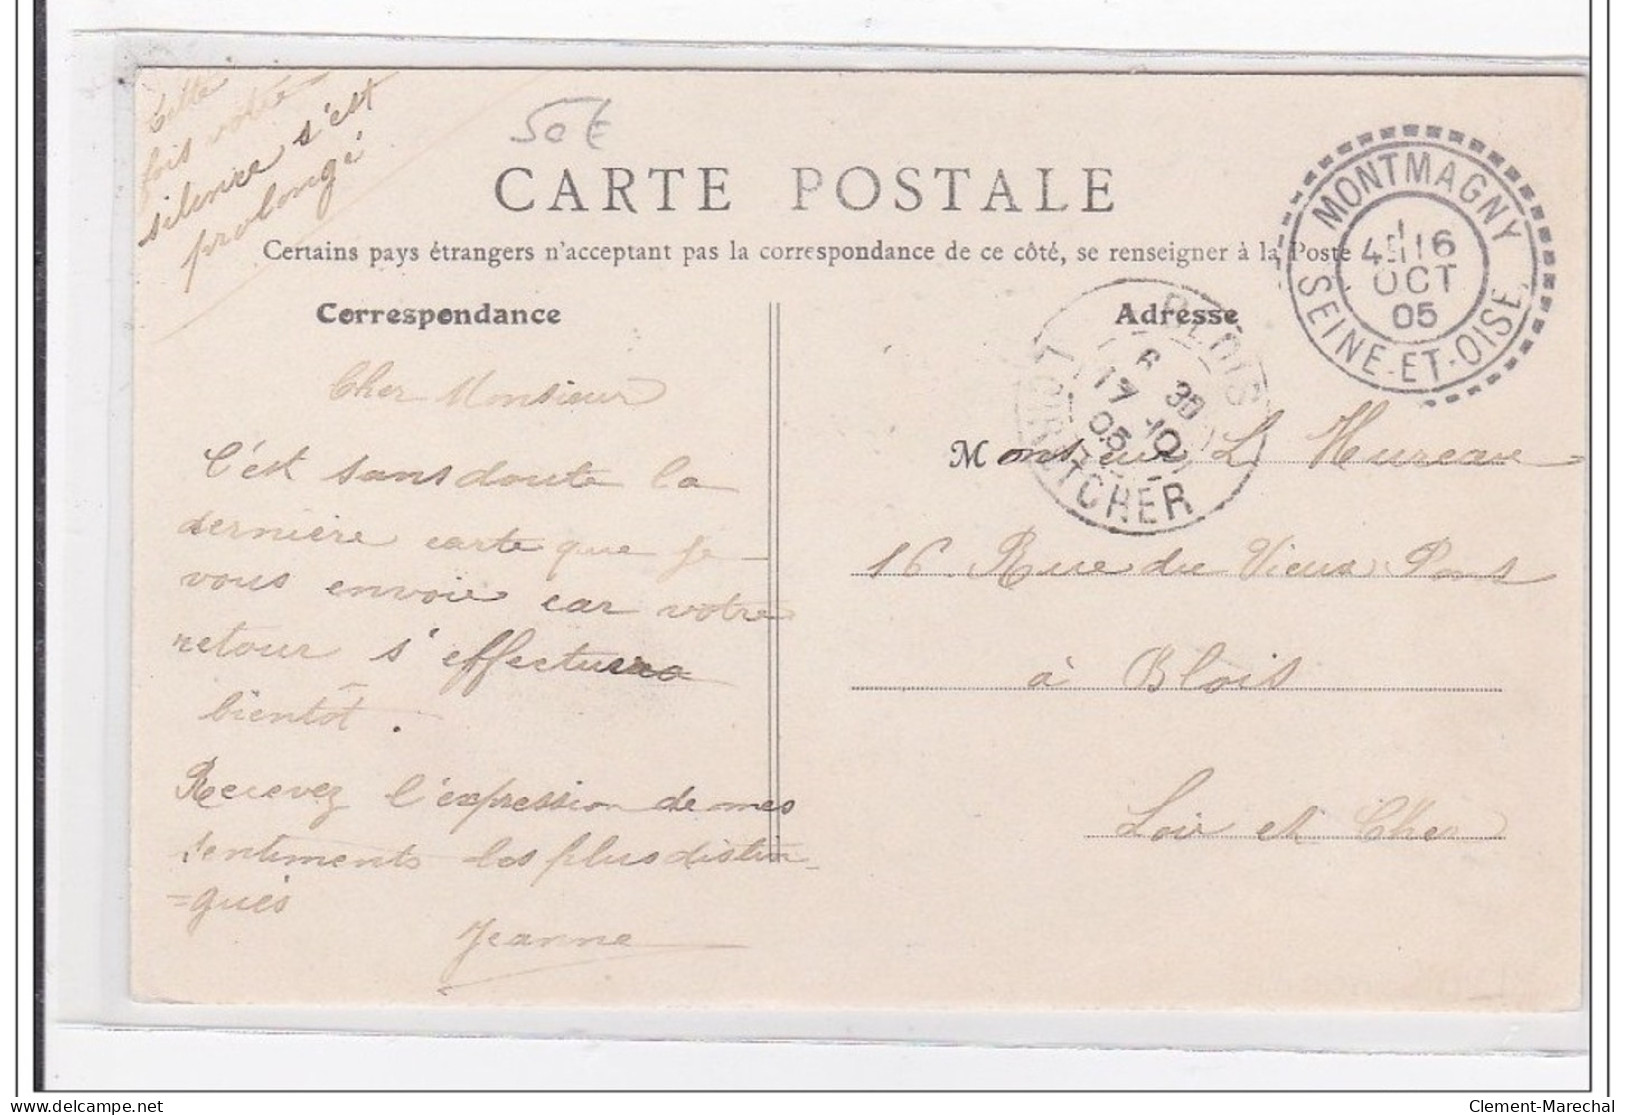 Cette
fois votre
silence s'est
prolongé
50 E
CARTE POSTALE
Certains pays étrangers n'acceptant pas la correspondance de ce côté, se renseigner à la Poste
Correspondance
Cher Monsieur
C'est sans doute la
dernière carte que je
vous envoie car votre
retour s'effectuera
bientôt.
Recevez l'expression de mes
sentiments les plus distin-
=gués
Jeanne
Adresse
MONTMAGNY
16
OCT
05
SEINE-ET-OISE
BLOIS
6 30
17 10
05
LOIR ET CHER
Monsieur L. Hureau
16 Rue du Vieux Pont
à Blois
Loir et Cher
Clement-Marechal